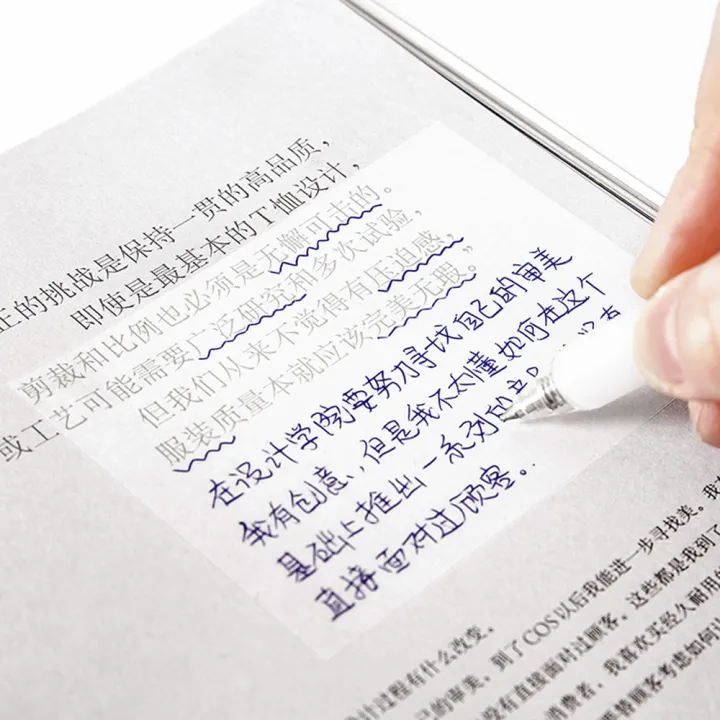 正的挑战是保持一贯的高品质，
即使是最基本的T恤设计，
剪裁和比例也必须是无懈可击的。
或工艺可能需要广泛研究和多次试验，
但我们从来不觉得有压迫感，
服装质量本就应该完美无瑕。”
在设计学院要努力寻找自己的审美
我有创意，但是我不太懂如何在这个
基础上推出一系列
直接面对过顾客。
计过程有什么改变。
己的审美，到了COS以后我能进一步寻找美。我
没有直接面对过顾客，这些都是我到了
消费者，我喜欢买经久耐用的
替顾客考虑如何